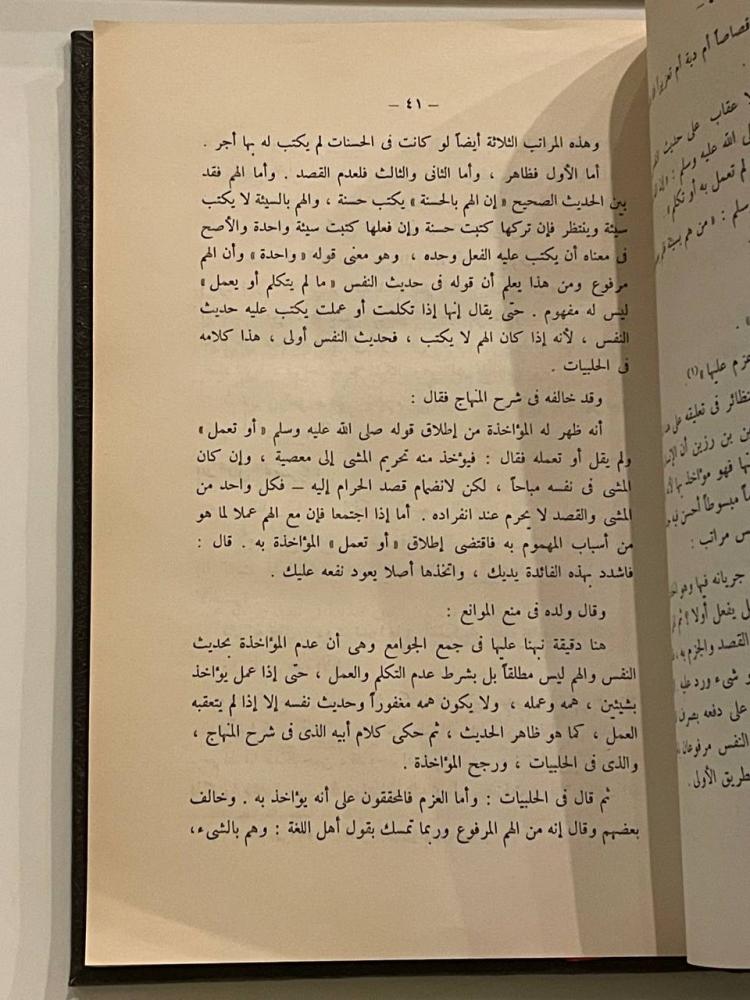 — ٤١ —
وهذه المراتب الثلاثة أيضاً لو كانت فى الحسنات لم يكتب له بها أجر .
أما الأول فظاهر ، وأما الثانى والثالث فلعدم القصد . وأما الهم فقد
بين الحديث الصحيح « إن الهم بالحسنة » يكتب حسنة ، والهم بالسيئة لا يكتب
سيئة وينتظر فإن تركها كتبت حسنة وإن فعلها كتبت سيئة واحدة والأصح
فى معناه أن يكتب عليه الفعل وحده ، وهو معنى قوله « واحدة » وأن الهم
مرفوع ومن هذا يعلم أن قوله فى حديث النفس « ما لم يتكلم أو يعمل »
ليس له مفهوم . حتى يقال إنها إذا تكلمت أو عملت يكتب عليه حديث
النفس ، لأنه إذا كان الهم لا يكتب ، فحديث النفس أولى ، هذا كلامه
فى الحلبيات .
وقد خالفه فى شرح المنهاج فقال :
أنه ظهر له المؤاخذة من إطلاق قوله صلى الله عليه وسلم « أو تعمل »
ولم يقل أو تعمله فقال : فيؤخذ منه تحريم المشى إلى معصية ، وإن كان
المشى فى نفسه مباحاً ، لكن لانضمام قصد الحرام إليه — فكل واحد من
المشى والقصد لا يحرم عند انفراده . أما إذا اجتمعا فإن مع الهم عملا لما هو
من أسباب المهموم به فاقتضى إطلاق « أو تعمل » المؤاخذة به . قال :
فاشدد بهذه الفائدة يديك ، واتخذها أصلا يعود نفعه عليك .
وقال ولده فى منع الموانع :
هنا دقيقة نبهنا عليها فى جمع الجوامع وهى أن عدم المؤاخذة بحديث
النفس والهم ليس مطلقاً بل بشرط عدم التكلم والعمل ، حتى إذا عمل يؤاخذ
بشيئين ، همه وعمله ، ولا يكون همه مغفوراً وحديث نفسه إلا إذا لم يتعقبه
العمل ، كما هو ظاهر الحديث ، ثم حكى كلام أبيه الذى فى شرح المنهاج ،
والذى فى الحلبيات ، ورجح المؤاخذة .
ثم قال فى الحلبيات : وأما العزم فالمحققون على أنه يؤاخذ به . وخالف
بعضهم وقال إنه من الهم المرفوع وربما تمسك بقول أهل اللغة : وهم بالشىء،
قصاصاً أم دية أم تعزيراً
لا عقاب على حديث
الله عليه وسلم :
لم تعمل به أو تكلم »
سلم : « من هم بسيئة
عزم عليها »(١).
فى تعليقه على
بن رزين أن
فهو مؤاخذ بها
مبسوطاً أحسن
مراتب :
جريانه فيها وهو
يفعل أولا ؟ ثم
القصد والجزم به
شىء ورد عليه
على دفعه بصرف
النفس مرفوعان
طريق الأولى .